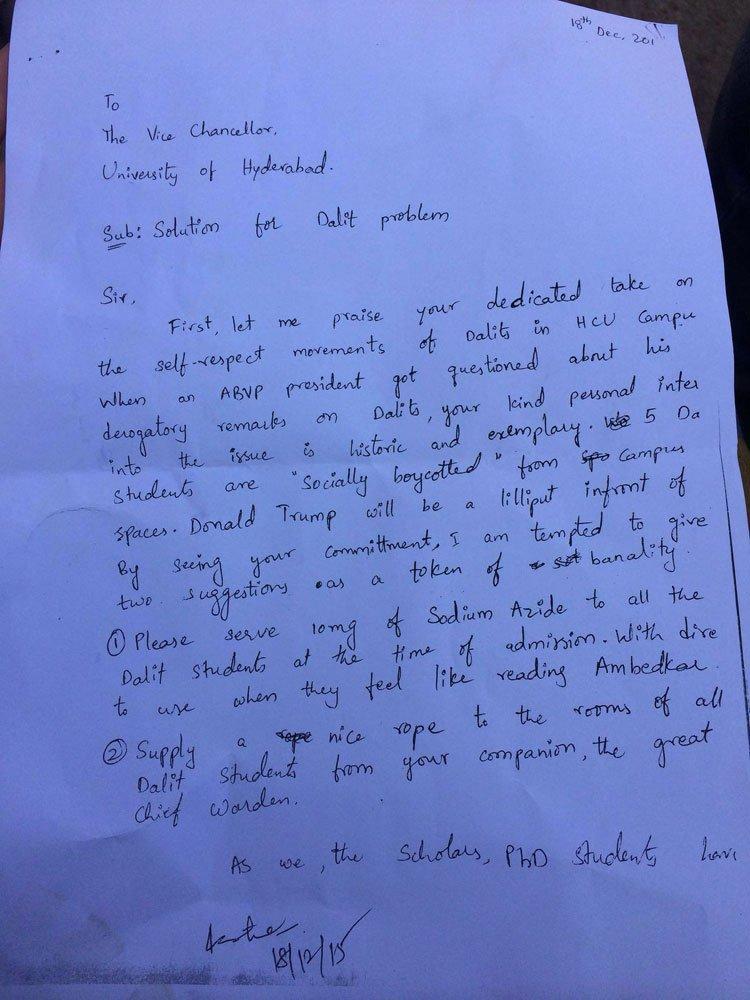 18th Dec, 201
To
The Vice Chancellor,
University of Hyderabad.
Sub: Solution for Dalit problem
Sir,
First, let me praise your dedicated take on
the self-respect movements of Dalits in HCU Campu
When an ABVP president got questioned about his
derogatory remarks on Dalits, your kind personal inter
into the issue is historic and exemplary. 5 Da
students are "socially boycotted" from campus
spaces. Donald Trump will be a lilliput infront of
By seeing your committment, I am tempted to give
two suggestions as a token of banality.
① Please serve 10mg of Sodium Azide to all the
Dalit students at the time of admission. With dire
to use when they feel like reading Ambedkar.
② Supply a nice rope to the rooms of all
Dalit students from your companion, the great
Chief warden.
As we, the scholars, PhD students have
18/12/15